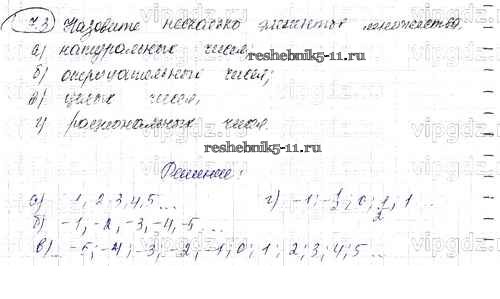 7.3 Назовите несколько элементов множества
а) натуральных чисел;
б) отрицательных чисел;
в) целых чисел,
г) рациональных чисел.
reshebnik5-11.ru
reshebnik5-11.ru
Решение:
а) 1, 2, 3, 4, 5 ... г) -1; -1/2; 0; 1/2; 1 ...
б) -1, -2, -3, -4, -5 ...
в) ... -5; -4; -3; -2; -1; 0; 1; 2; 3; 4; 5 ...